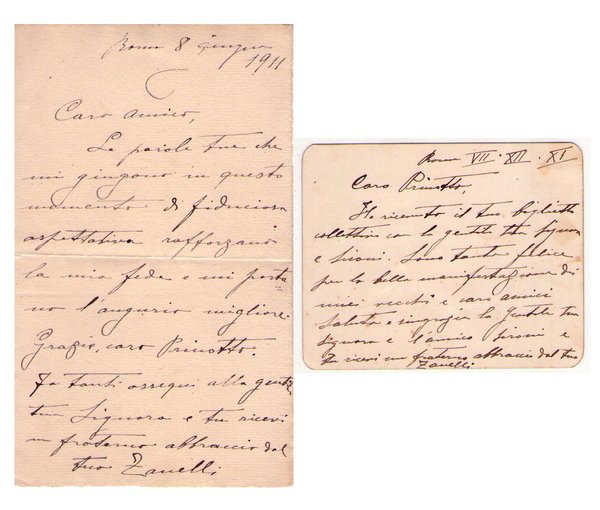 Roma 8 giugno
1911
Caro amico,
Le parole tue che
mi giungono in questo
momento di fiduciosa
aspettativa rafforzano
la mia fede e mi porta
no l'augurio migliore.
Grazie, caro Prinotto.
Fa tanti ossequi alla gentile
tua Signora e tu ricevi
un fraterno abbraccio dal
tuo Zanelli
Roma VII. XII. XI
Caro Prinotto,
Ho ricevuto il tuo biglietto
collettivo con la gentile tua Signora
e Sironi. Sono tanto felice
per la bella manifestazione di
miei vecchi e cari amici
Saluta e ringrazia la gentile tua
Signora e l'amico Sironi e
tu ricevi un fraterno abbraccio dal tuo
Zanelli